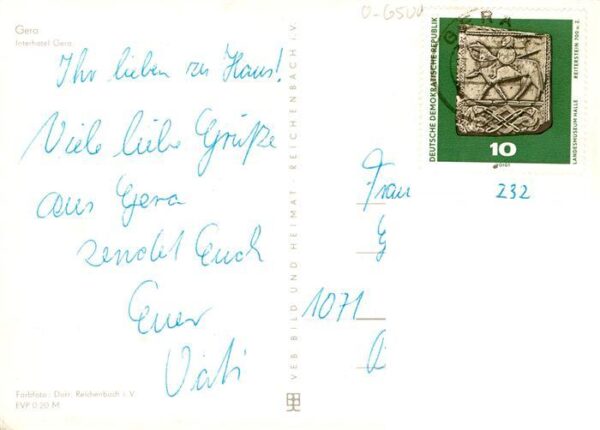 Gera
Interhotel Gera
Ihr lieben zu Haus!
Viele liebe Grüße
aus Gera
sendet Euch
Euer
Vati
Farbfoto: Darr, Reichenbach i. V.
EVP 0.20 M
VEB BILD UND HEIMAT REICHENBACH i.V.
0-6500
GERA
DEUTSCHE DEMOKRATISCHE REPUBLIK
10
REITERSTEIN 700 u. Z.
LANDESMUSEUM HALLE
Frau
232
1071